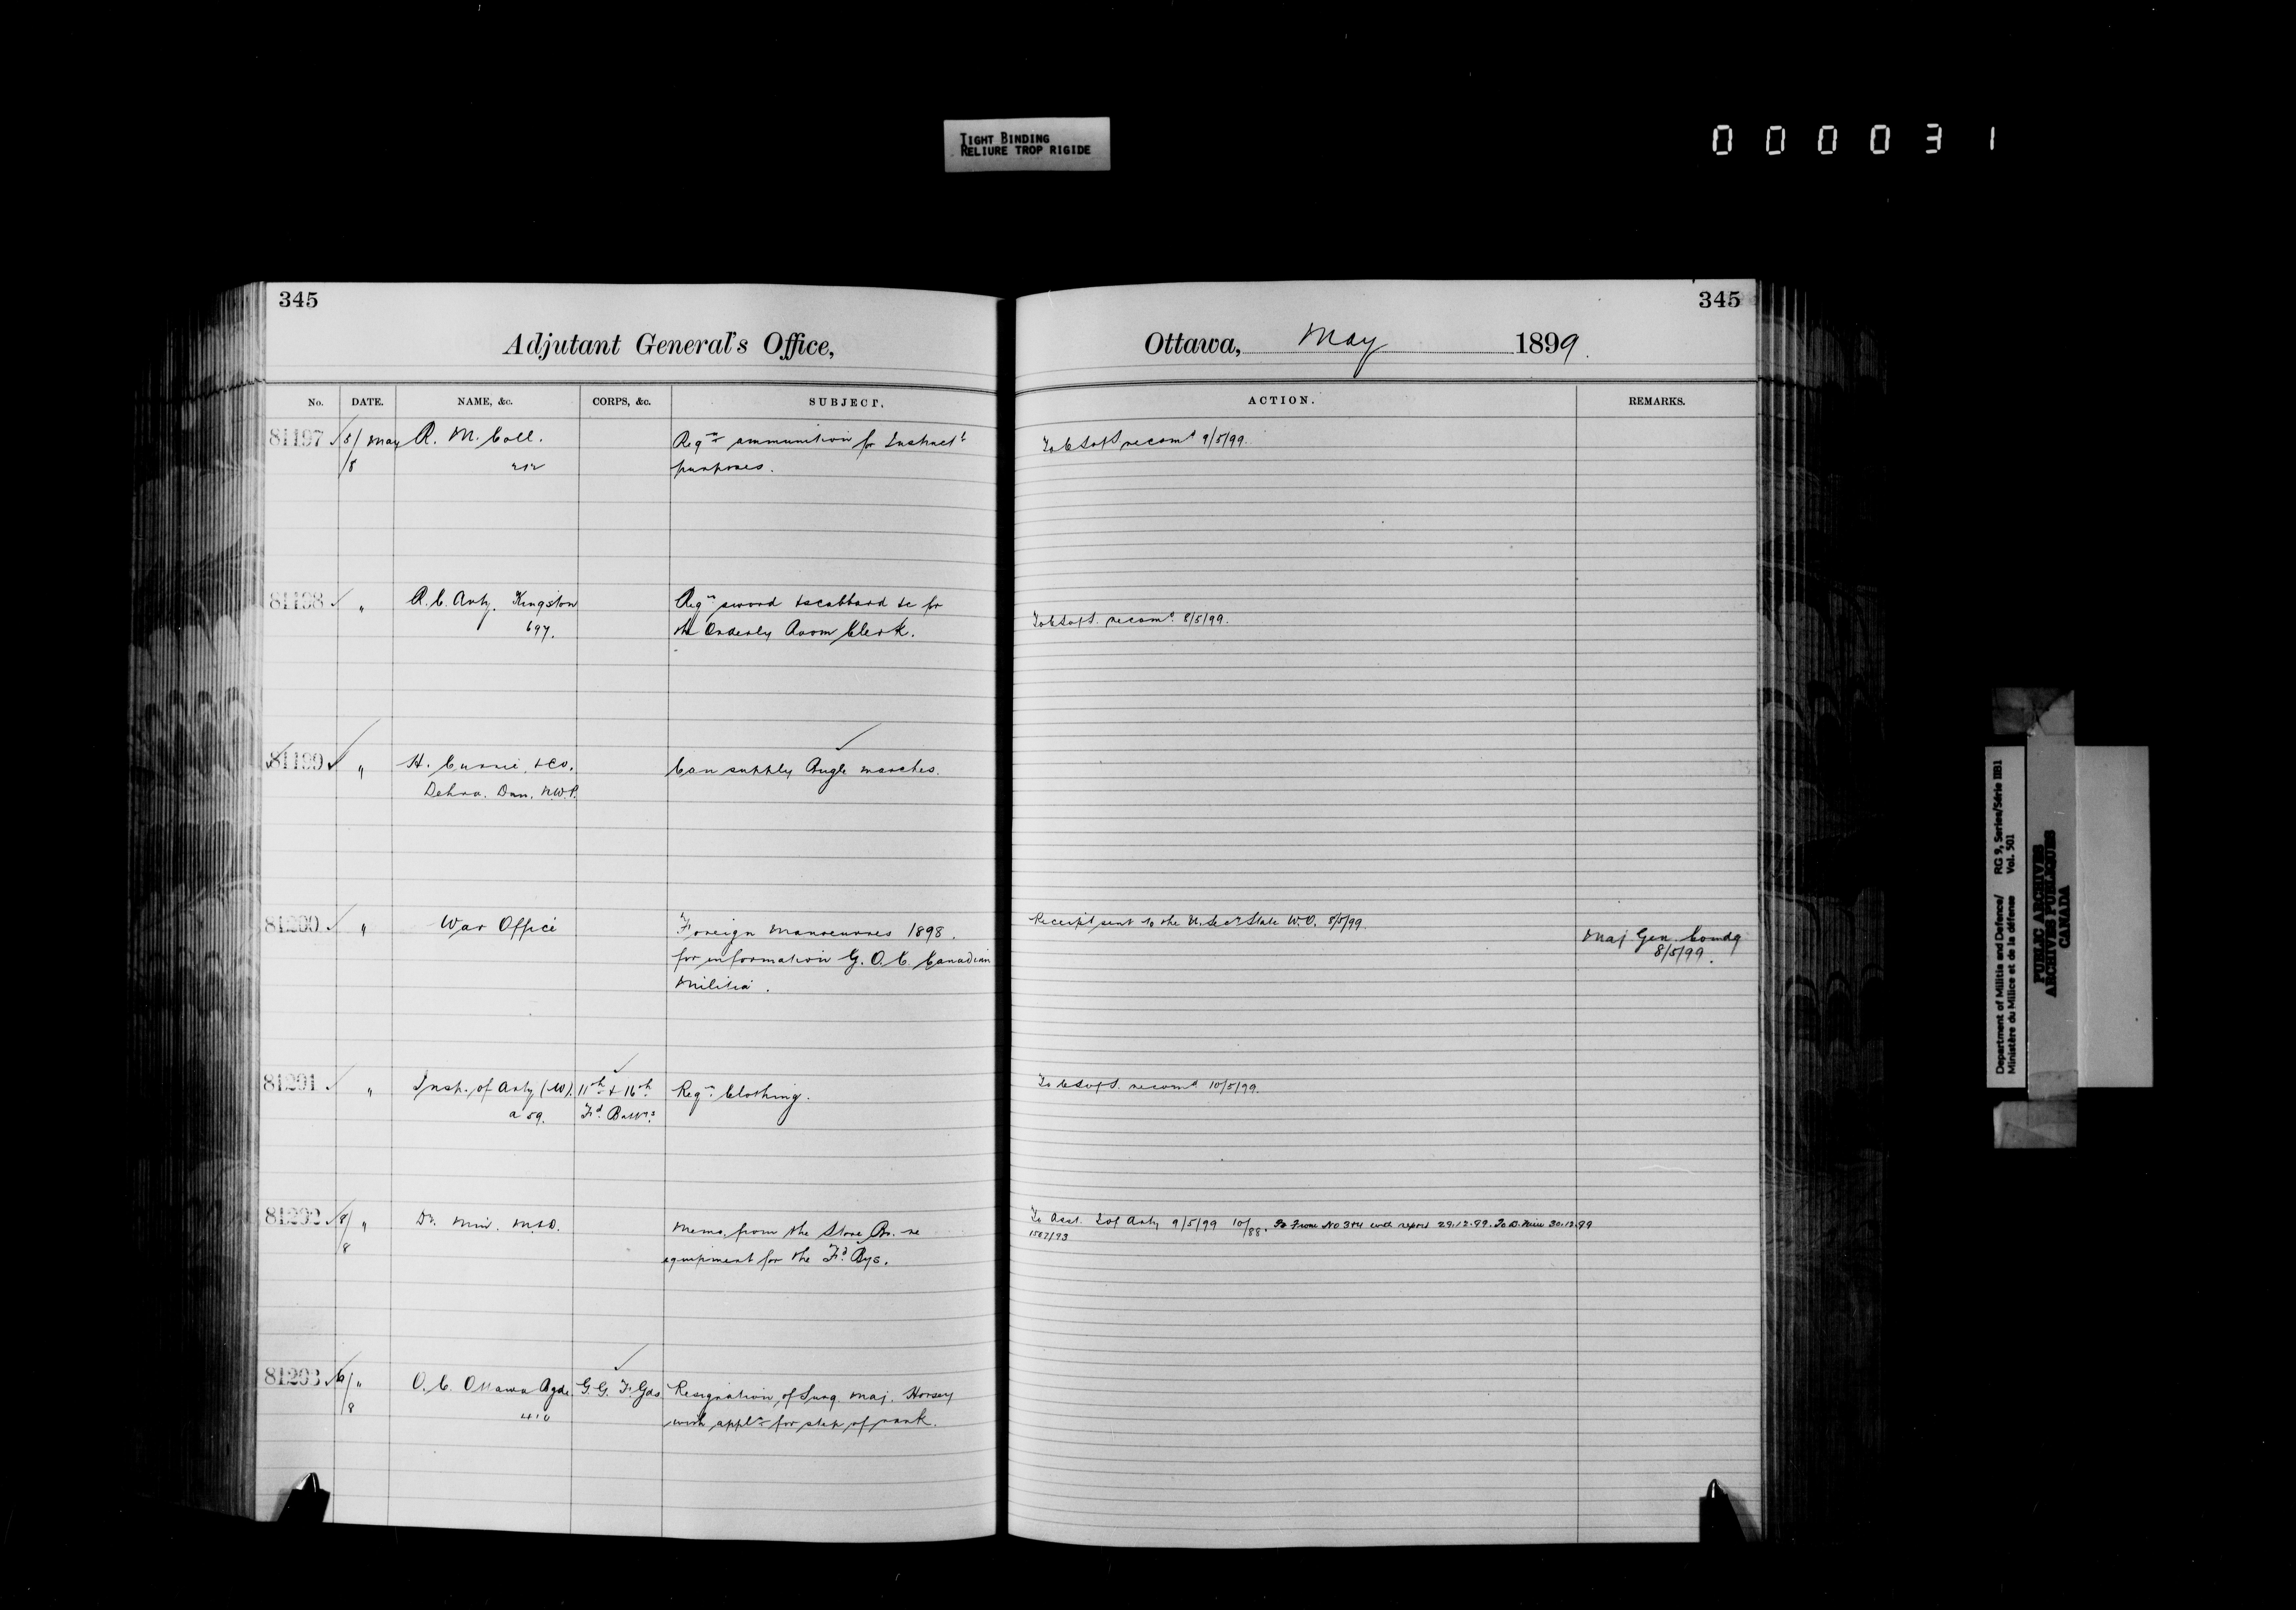 TIGHT BINDING
RELIURE TROP RIGIDE
000031
345
Adjutant General's Office,
No. DATE. NAME, &c. CORPS, &c. SUBJECT.
81197 5/8 May R. M. Coll. Reqn ammunition for Instruct1
212 purposes.
81198 " R.C. Arty. Kingston Reqn sword & scabbard &c for
697. the Orderly Room Clerk.
81199 " H. Currie & Co. Can supply Bugle marches.
Dehra. Dun. N.W.P.
81200 " War Office Foreign Manoeuvres 1898.
for information G.O.C. Canadian
Militia.
81201 " Insp. of Arty (W). 11th & 16th Reqn Clothing.
a 59. Fd. Battrs.
81202 8/8 " Dr. Min. M&D. Memo. from the Store Br. re
equipment for the Fd. Bys.
81203 6/8 " O.C. Ottawa Bgde G.G. F. Gds Resignation of Surg. Maj. Horsey
410 with appln for step of rank.
345
Ottawa, May 1899.
ACTION. REMARKS.
To C S of S recomd 9/5/99.
To C S of S. recomd 8/5/99.
Receipt sent to the U. Secr State W.O. 8/5/99.
Maj. Gen. Comdg
8/5/99.
To C S of S. recomd 10/5/99.
To Asst. I of Arty 9/5/99 10/88. To From No 344 with report 29.12.99. To D. Min 30.12.99
1567/93
Department of Militia and Defence/ RG 9, Series/Série IIB1
Ministère du Milice et de la défense Vol. 501
PUBLIC ARCHIVES
ARCHIVES PUBLIQUES
CANADA